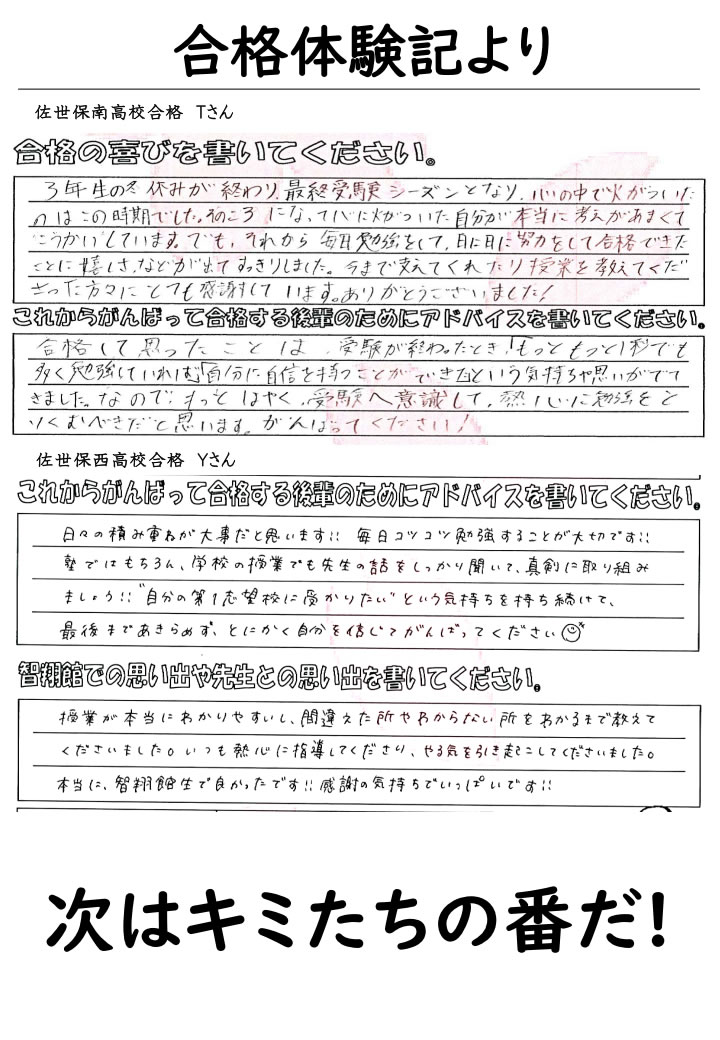 合格体験記より
佐世保南高校合格　Tさん
合格の喜びを書いてください。
3年生の冬休みが終わり、最終受験シーズンとなり、心の中で火がついた
のはこの時期でした。そのころになって心に火がついた自分が本当に考えがあまくて
こうかいしています。でも、それから毎日勉強をして、日に日に努力をして合格できた
ことに嬉しさなどが出てすっきりしました。今まで支えてくれたり授業を教えてくだ
さった方々にとても感謝しています。ありがとうございました!
これからがんばって合格する後輩のためにアドバイスを書いてください。
合格して思ったことは、受験が終わったとき「もっともっと1秒でも
多く勉強していれば」「自分に自信を持つことができた」という気持ちや思いがでて
きました。なので、もっとはやく、受験へ意識して、熱心に勉強をと
りくむべきだと思います。がんばってください!
佐世保西高校合格　Yさん
これからがんばって合格する後輩のためにアドバイスを書いてください。
日々の積み重ねが大事だと思います!! 毎日コツコツ勉強することが大切です!!
塾ではもちろん、学校の授業でも先生の話をしっかり聞いて、真剣に取り組み
ましょう!! "自分の第1志望校に受かりたい" という気持ちを持ち続けて、
最後まであきらめず、とにかく自分を信じてがんばってください
智翔館での思い出や先生との思い出を書いてください。
授業が本当にわかりやすいし、間違えた所やわからない所をわかるまで教えて
くださいました。いつも熱心に指導してくださり、やる気を引き起こしてくださいました。
本当に、智翔館生で良かったです!! 感謝の気持ちでいっぱいです!!
次はキミたちの番だ!